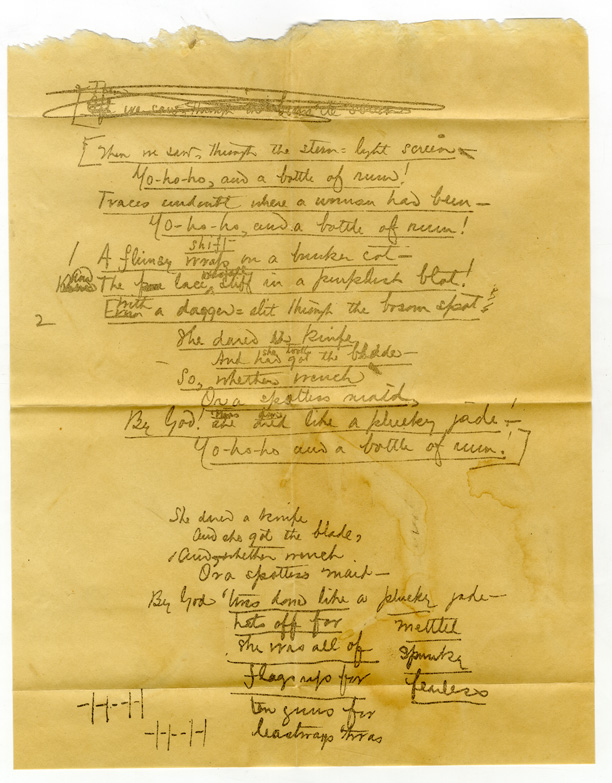 Then
we saw, through
[Then we saw, through the stern-light screen—
Yo-ho-ho, and a bottle of rum!
Traces undoubt where a woman had been—
Yo-ho-ho, and a bottle of rum!
shift
1 A flimsy wrap on a bunker cot—
The lace stiff in a purplish blot!
with
2 a dagger-slit through the bosom spot
She dared the knife
she
And had got the blade—
So, whether wench
Or a spotless maid,
By God! she died like a plucky jade!—
Yo-ho-ho and a bottle of rum!]
She dared a knife
And she got the blade,
And, whether wench
Or a spotless maid—
By God 'twas done like a plucky jade—
hats off for mettled
she was all of spunky
flags up for fearless
ten guns for
leastways 'twas